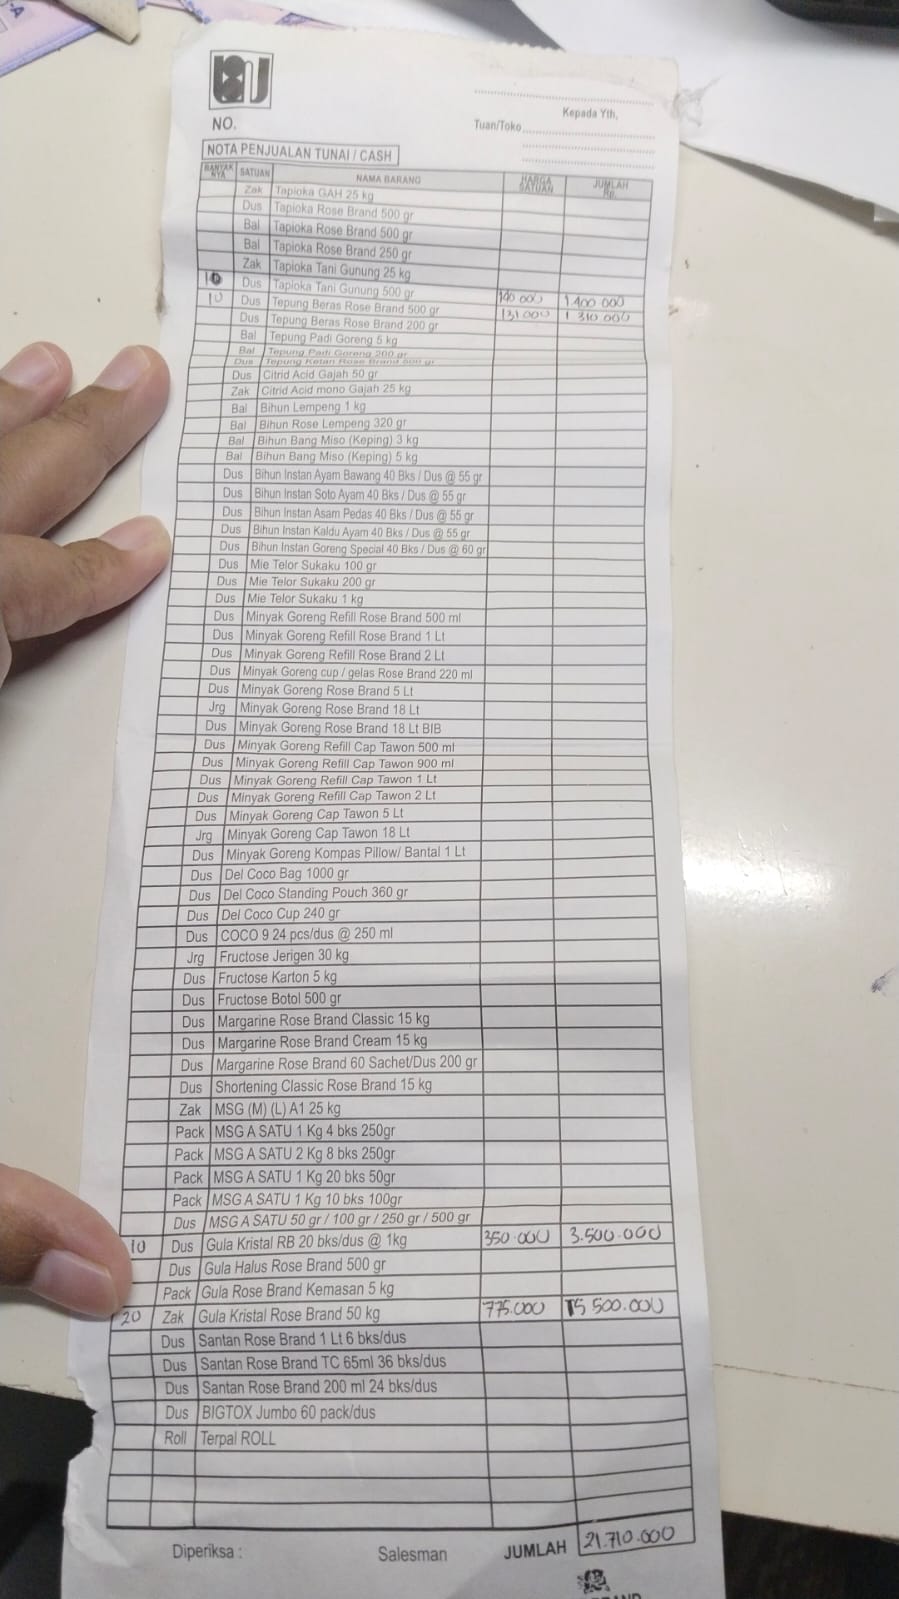 NO.
Kepada Yth,
Tuan/Toko
NOTA PENJUALAN TUNAI / CASH
BANYAK NYA SATUAN NAMA BARANG HARGA SATUAN JUMLAH Rp.
Zak Tapioka GAH 25 kg
Dus Tapioka Rose Brand 500 gr
Bal Tapioka Rose Brand 500 gr
Bal Tapioka Rose Brand 250 gr
Zak Tapioka Tani Gunung 25 kg
10 Dus Tapioka Tani Gunung 500 gr 140 000 1.400 000
10 Dus Tepung Beras Rose Brand 500 gr 131 000 1 310 000
Dus Tepung Beras Rose Brand 200 gr
Bal Tepung Padi Goreng 5 kg
Bal Tepung Padi Goreng 200 gr
Dus Tepung Ketan Rose Brand 500 gr
Dus Citrid Acid Gajah 50 gr
Zak Citrid Acid mono Gajah 25 kg
Bal Bihun Lempeng 1 kg
Bal Bihun Rose Lempeng 320 gr
Bal Bihun Bang Miso (Keping) 3 kg
Bal Bihun Bang Miso (Keping) 5 kg
Dus Bihun Instan Ayam Bawang 40 Bks / Dus @ 55 gr
Dus Bihun Instan Soto Ayam 40 Bks / Dus @ 55 gr
Dus Bihun Instan Asam Pedas 40 Bks / Dus @ 55 gr
Dus Bihun Instan Kaldu Ayam 40 Bks / Dus @ 55 gr
Dus Bihun Instan Goreng Special 40 Bks / Dus @ 60 gr
Dus Mie Telor Sukaku 100 gr
Dus Mie Telor Sukaku 200 gr
Dus Mie Telor Sukaku 1 kg
Dus Minyak Goreng Refill Rose Brand 500 ml
Dus Minyak Goreng Refill Rose Brand 1 Lt
Dus Minyak Goreng Refill Rose Brand 2 Lt
Dus Minyak Goreng cup / gelas Rose Brand 220 ml
Dus Minyak Goreng Rose Brand 5 Lt
Jrg Minyak Goreng Rose Brand 18 Lt
Dus Minyak Goreng Rose Brand 18 Lt BIB
Dus Minyak Goreng Refill Cap Tawon 500 ml
Dus Minyak Goreng Refill Cap Tawon 900 ml
Dus Minyak Goreng Refill Cap Tawon 1 Lt
Dus Minyak Goreng Refill Cap Tawon 2 Lt
Dus Minyak Goreng Cap Tawon 5 Lt
Jrg Minyak Goreng Cap Tawon 18 Lt
Dus Minyak Goreng Kompas Pillow/ Bantal 1 Lt
Dus Del Coco Bag 1000 gr
Dus Del Coco Standing Pouch 360 gr
Dus Del Coco Cup 240 gr
Dus COCO 9 24 pcs/dus @ 250 ml
Jrg Fructose Jerigen 30 kg
Dus Fructose Karton 5 kg
Dus Fructose Botol 500 gr
Dus Margarine Rose Brand Classic 15 kg
Dus Margarine Rose Brand Cream 15 kg
Dus Margarine Rose Brand 60 Sachet/Dus 200 gr
Dus Shortening Classic Rose Brand 15 kg
Zak MSG (M) (L) A1 25 kg
Pack MSG A SATU 1 Kg 4 bks 250gr
Pack MSG A SATU 2 Kg 8 bks 250gr
Pack MSG A SATU 1 Kg 20 bks 50gr
Pack MSG A SATU 1 Kg 10 bks 100gr
Dus MSG A SATU 50 gr / 100 gr / 250 gr / 500 gr
10 Dus Gula Kristal RB 20 bks/dus @ 1kg 350.000 3.500.000
Dus Gula Halus Rose Brand 500 gr
Pack Gula Rose Brand Kemasan 5 kg
20 Zak Gula Kristal Rose Brand 50 kg 775.000 15 500.000
Dus Santan Rose Brand 1 Lt 6 bks/dus
Dus Santan Rose Brand TC 65ml 36 bks/dus
Dus Santan Rose Brand 200 ml 24 bks/dus
Dus BIGTOX Jumbo 60 pack/dus
Roll Terpal ROLL
Diperiksa : Salesman JUMLAH 21.710.000